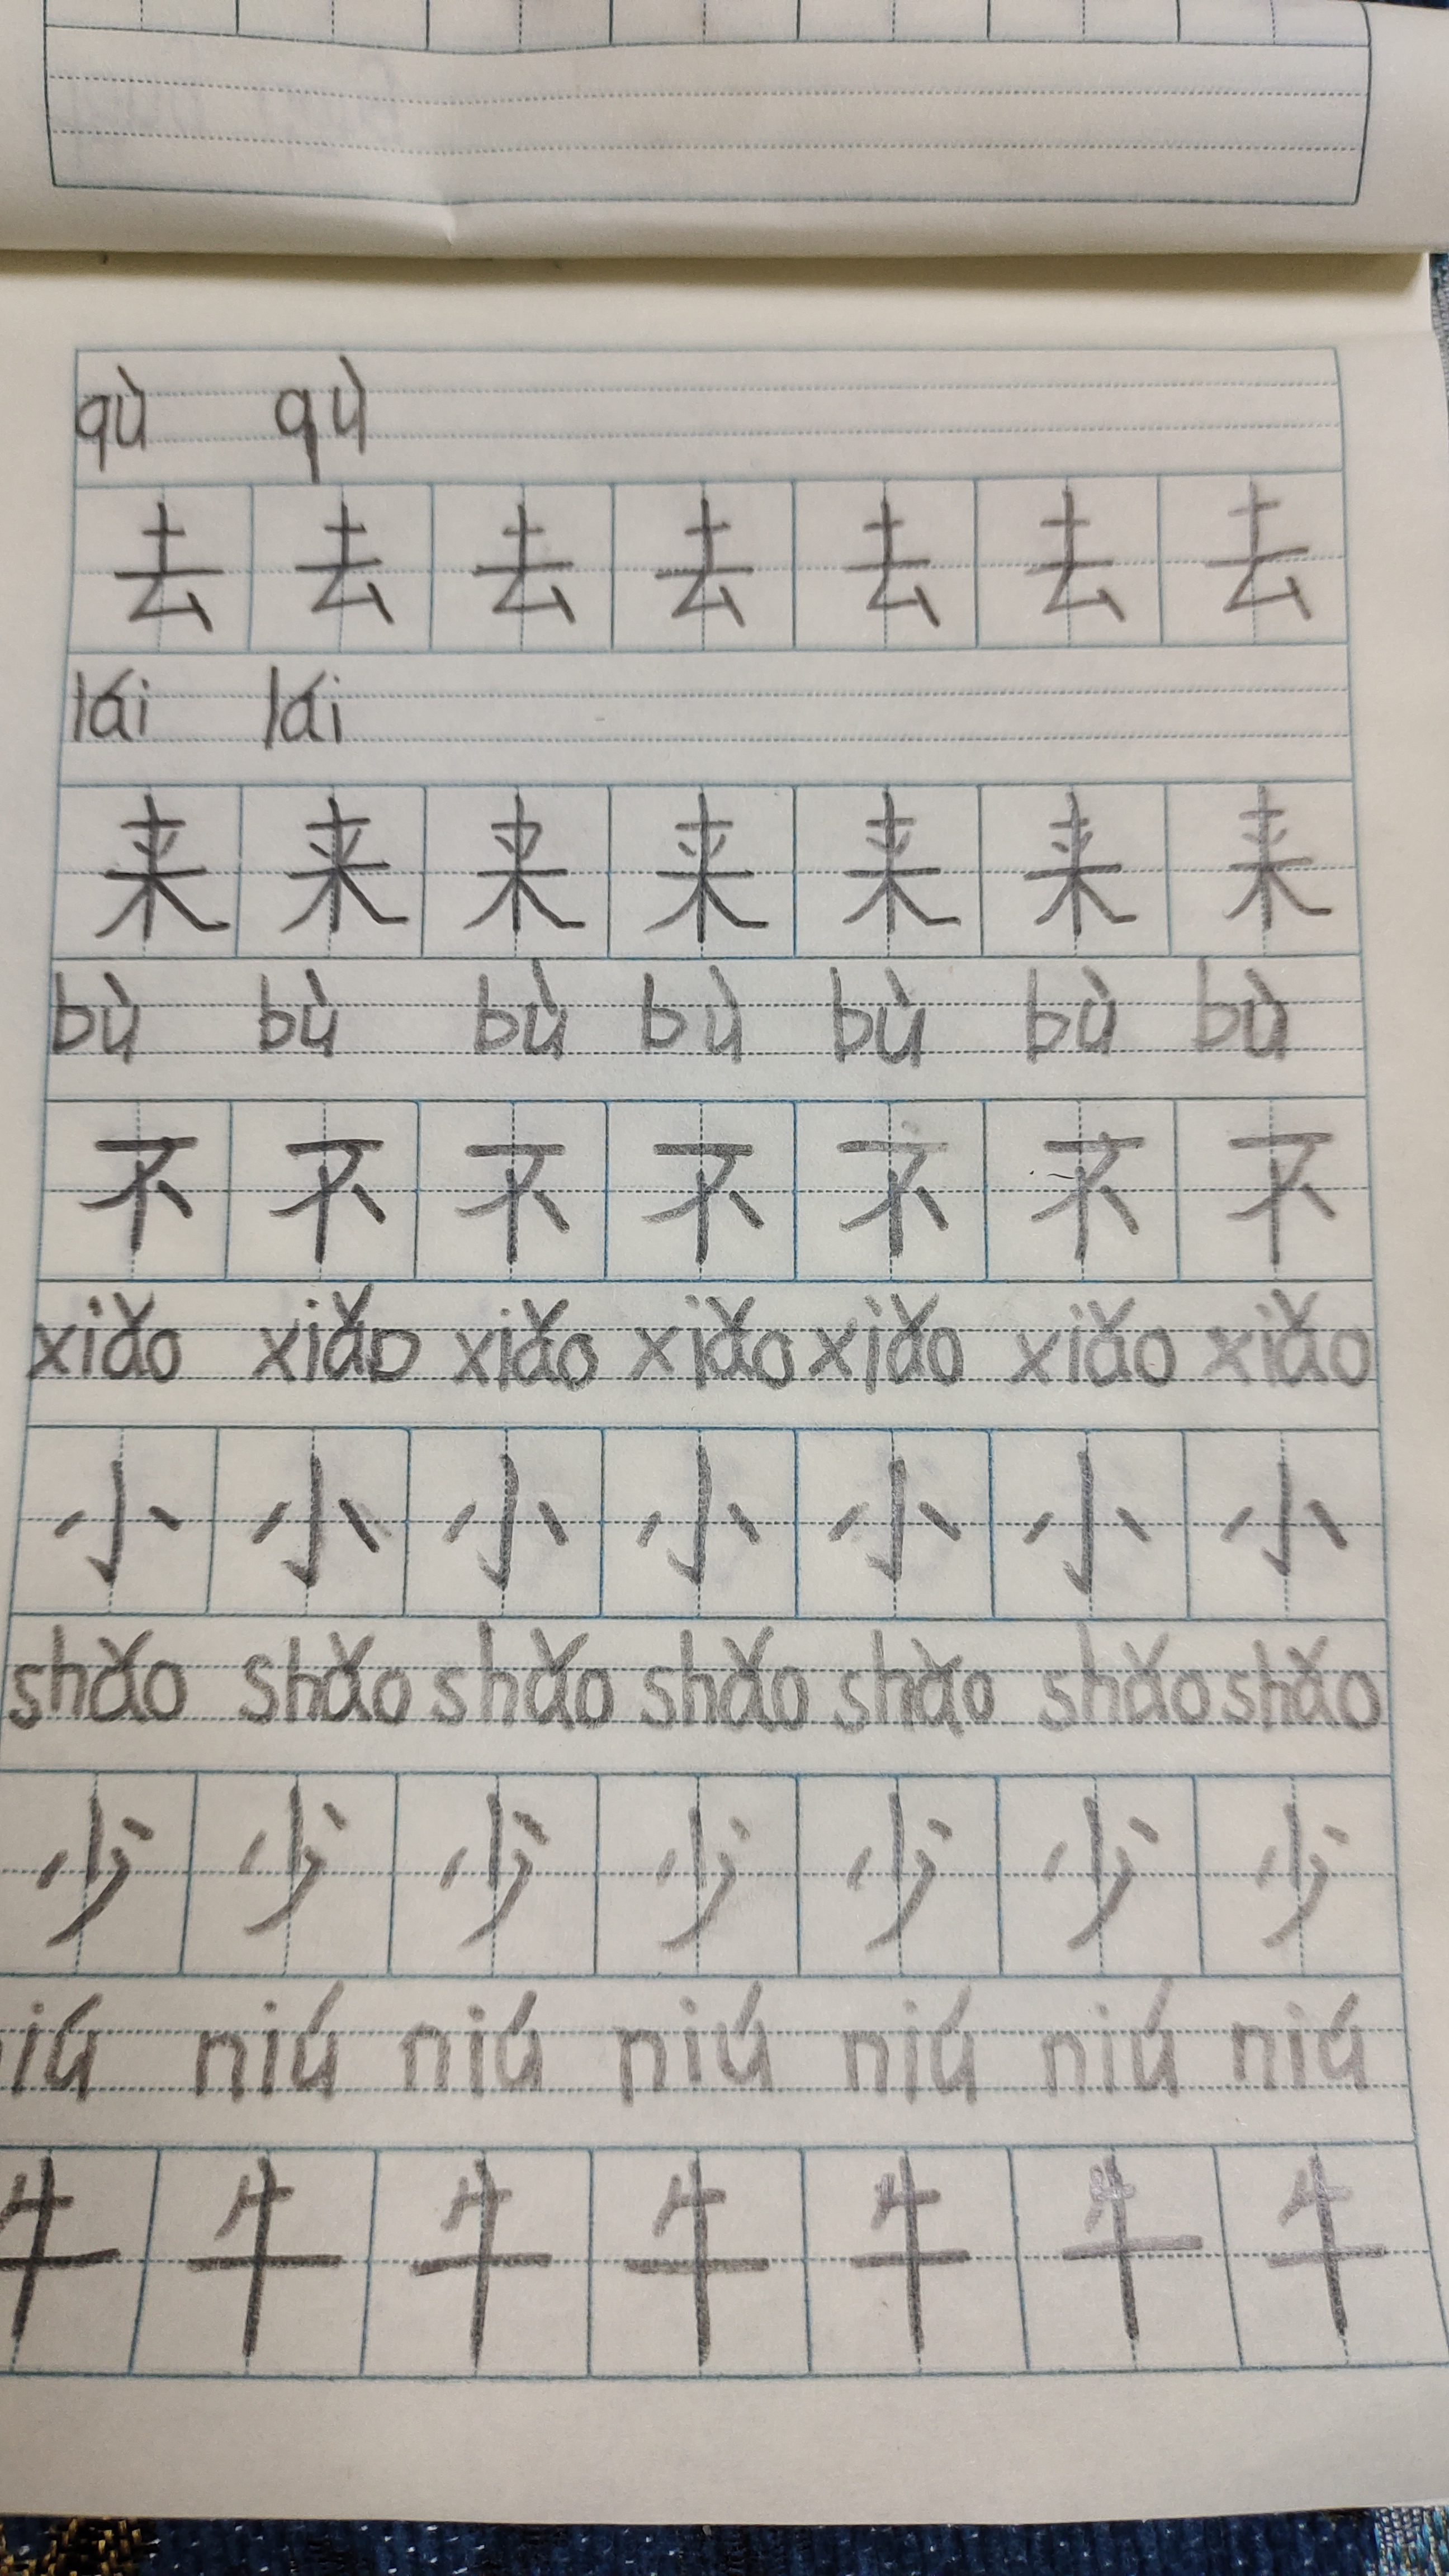 qù qù
去 去 去 去 去 去 去
lái lái
来 来 来 来 来 来 来
bù bù bù bù bù bù bù
不 不 不 不 不 不 不
xiǎo xiǎo xiǎo xiǎo xiǎo xiǎo xiǎo
小 小 小 小 小 小 小
shǎo shǎo shǎo shǎo shǎo shǎo shǎo
少 少 少 少 少 少 少
iú niú niú niú niú niú niú
牛 牛 牛 牛 牛 牛 牛